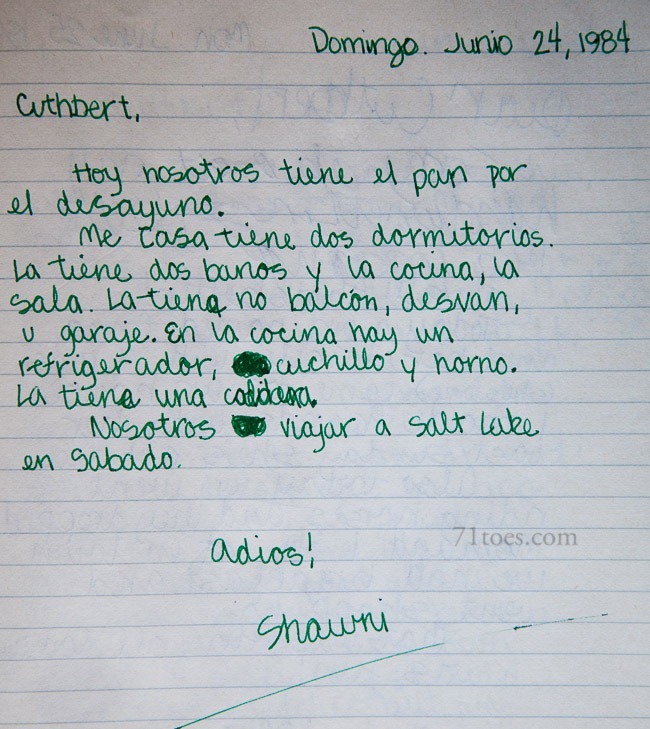 Domingo. Junio 24, 1984
Cuthbert,
Hoy nosotros tiene el pan por
el desayuno.
Me casa tiene dos dormitorios.
La tiene dos banos y la cocina, la
sala. La tiene no balcón, desvan,
u garaje. En la cocina hay un
refrigerador, cuchillo y horno.
La tiene una
Nosotros viajar a Salt Lake
en Sabado.
adios!
71toes.com
Shawni